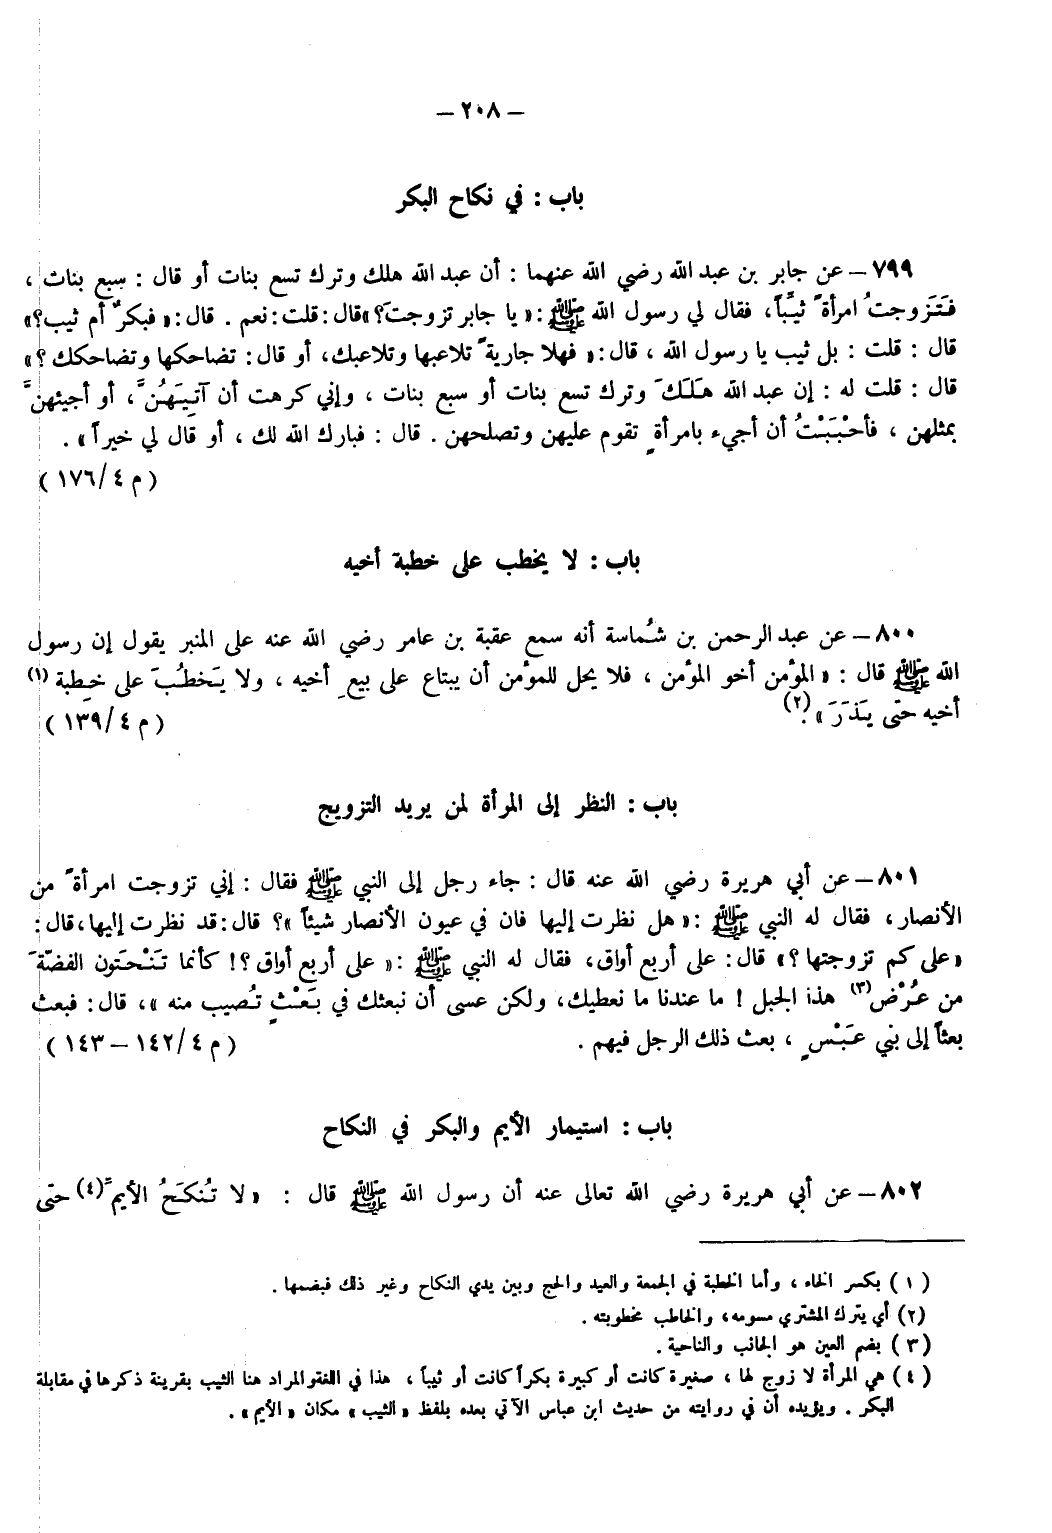 – ٢٠٨ –
باب : في نكاح البكر
٧٩٩ – عن جابر بن عبد الله رضي الله عنهما : أن عبد الله هلك وترك تسع بنات أو قال : سبع بنات ،
فَتَزوجتُ امرأةً ثيِّباً، فقال لي رسول الله ﷺ :« يا جابر تزوجتَ؟»قال:قلت:نعم . قال:« فبكرٌ أم ثيب؟»
قال : قلت : بل ثيب يا رسول الله ، قال:« فهلا جاريةً تلاعبها وتلاعبك، أو قال: تضاحكها وتضاحكك ؟»
قال : قلت له : إن عبد الله هَلَكَ وترك تسع بنات أو سبع بنات ، وإني كرهت أن آتِيَهُنَّ ، أو أجيئهنَّ
بمثلهن ، فأحْبَبْتُ أن أجيء بامرأةٍ تقوم عليهن وتصلحهن . قال : فبارك الله لك ، أو قال لي خيراً » .
( م ٤/ ١٧٦ )
باب : لا يخطب على خطبة أخيه
٨٠٠ – عن عبد الرحمن بن شُماسة أنه سمع عقبة بن عامر رضي الله عنه على المنبر يقول إن رسول
الله ﷺ قال : « المؤمن أخو المؤمن ، فلا يحل للمؤمن أن يبتاع على بيعِ أخيه ، ولا يَخطُبَ على خِطبة (١)
أخيه حتى يَذَرَ ».(٢)
( م ٤/ ١٣٩ )
باب : النظر إلى المرأة لمن يريد التزويج
٨٠١ – عن أبي هريرة رضي الله عنه قال : جاء رجل إلى النبي ﷺ فقال : إني تزوجت امرأةً من
الأنصار ، فقال له النبي ﷺ :« هل نظرت إليها فان في عيون الأنصار شيئاً »؟ قال:قد نظرت إليها،قال:
«على كم تزوجتها ؟» قال: على أربع أواق، فقال له النبي ﷺ :« على أربع أواق ؟! كأنما تَنْحَتون الفضّةَ
من عُرْض(٣) هذا الجبل ! ما عندنا ما نعطيك، ولكن عسى أن نبعثك في بَعْثٍ تُصيب منه »، قال: فبعث
بعثاً إلى بني عَبْسٍ ، بعث ذلك الرجل فيهم .
( م ٤/ ١٤٢ – ١٤٣ )
باب : استيمار الأيم والبكر في النكاح
٨٠٢ – عن أبي هريرة رضي الله تعالى عنه أن رسول الله ﷺ قال : « لا تُنكَحُ الأيم(٤) حتى
( ١ ) بكسر الخاء ، وأما الخطبة في الجمعة والعيد والحج وبين يدي النكاح وغير ذلك فبضمها .
(٢) أي يترك المشتري مسومه، والخاطب مخطوبته .
( ٣ ) بضم العين هو الجانب والناحية .
( ٤ ) هي المرأة لا زوج لها ، صغيرة كانت أو كبيرة بكراً كانت أو ثيباً ، هذا في اللغة والمراد هنا الثيب بقرينة ذكرها في مقابلة
البكر . ويؤيده أن في روايته من حديث ابن عباس الآتي بعده بلفظ « الثيب » مكان « الأيم » .